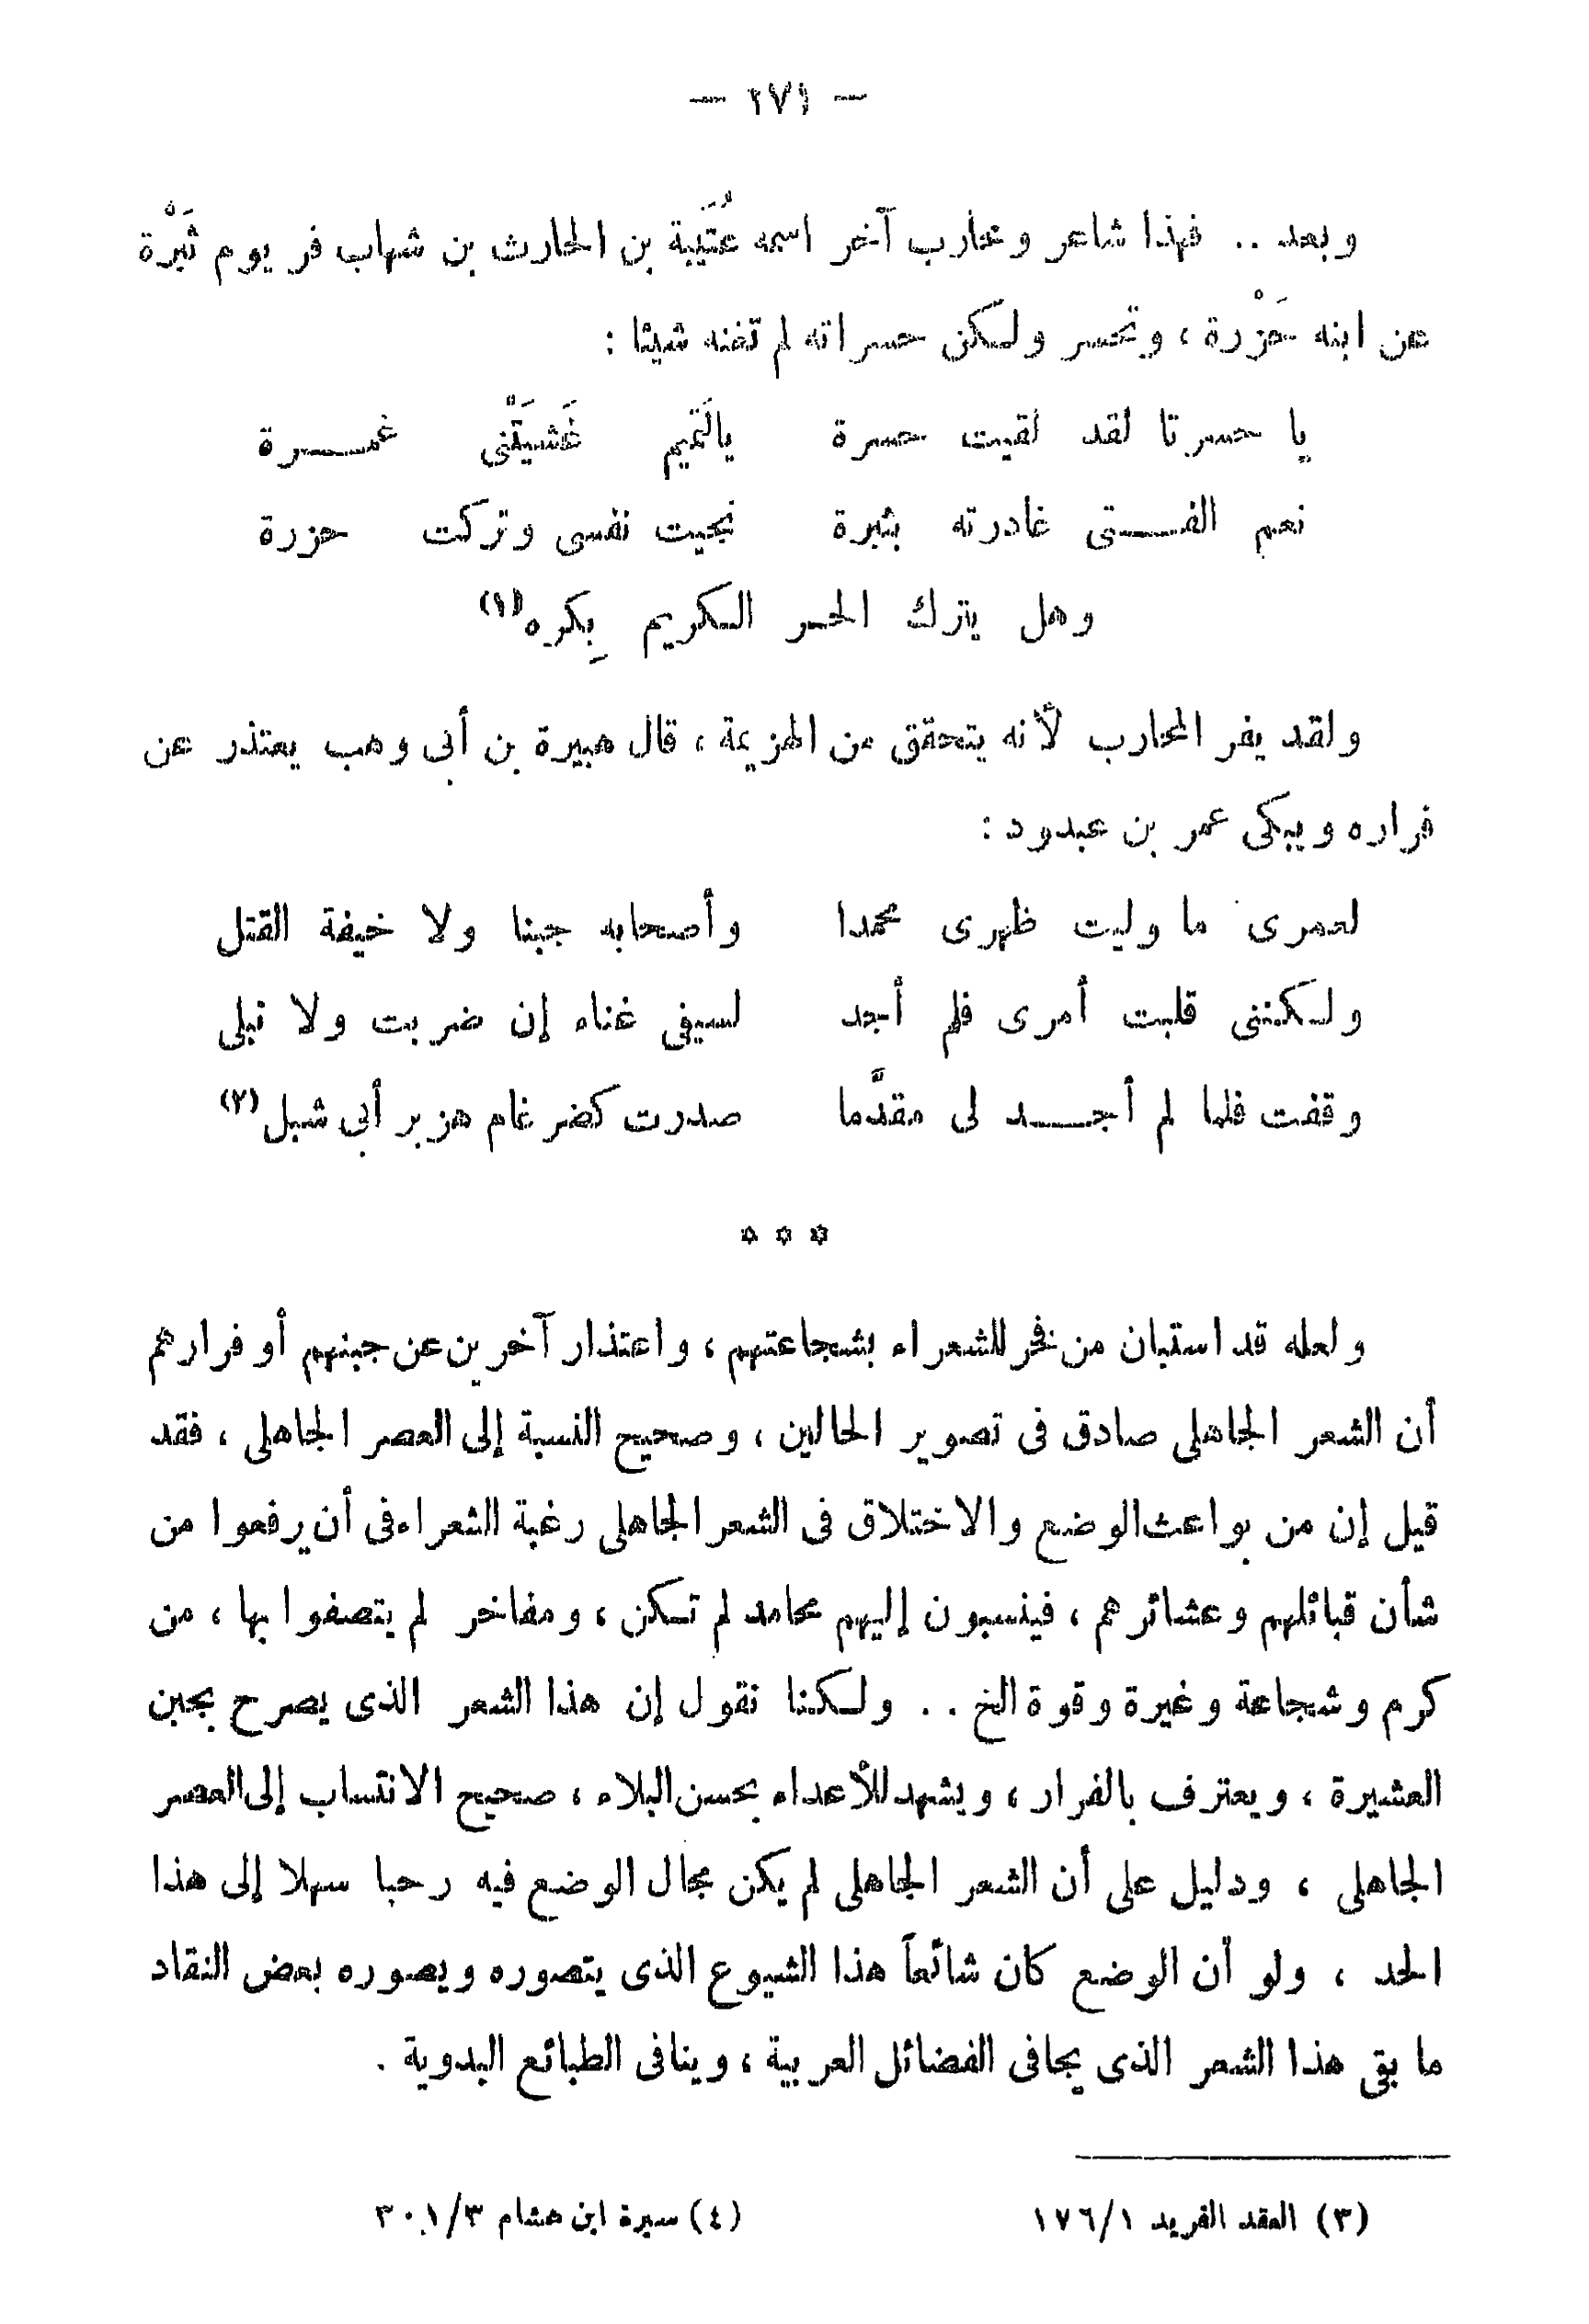 — ٢٧١ —
وبعد .. فهذا شاعر ومحارب آخر اسمه عُتَيْبة بن الحارث بن شهاب فر يوم ثَبْرة
عن ابنه حَزْرة ، وتحسر ولكن حسراته لم تغنه شيئا :
يا حسرتا لقد لقيت حسرة يالَتميم غَشيَتْنى غمـــرة
نعم الفـــتى غادرته بثبرة نجيت نفسى وتركت حزرة
وهل يترك الحر الكريم بِكره(١)
ولقد يفر المحارب لأنه يتحقق من الهزيمة ، قال هبيرة بن أبى وهب يعتذر عن
فراره ويبكى عمر بن عبدود :
لعمرى ما وليت ظهرى محمدا وأصحابه جبنا ولا خيفة القتل
ولكننى قلبت أمرى فلم أجد لسيفى غناء إن ضربت ولا نبلى
وقفت فلما لم أجـــد لى مقدَّما صدرت كضرغام هزبر أبى شبل(٢)
* * *
ولعله قد استبان من فخر للشعراء بشجاعتهم ، واعتذار آخرين عن جبنهم أو فرارهم
أن الشعر الجاهلى صادق فى تصوير الحالين ، وصحيح النسبة إلى العصر الجاهلى ، فقد
قيل إن من بواعث الوضع والاختلاق فى الشعر الجاهلى رغبة الشعراء فى أن يرفعوا من
شأن قبائلهم وعشائرهم ، فينسبون إليهم محامد لم تكن ، ومفاخر لم يتصفوا بها ، من
كرم وشجاعة وغيرة وقوة الخ .. ولكنا نقول إن هذا الشعر الذى يصرح بجبن
العشيرة ، ويعترف بالفرار ، ويشهد للأعداء بحسن البلاء ، صحيح الانتساب إلى العصر
الجاهلى ، ودليل على أن الشعر الجاهلى لم يكن مجال الوضع فيه رحبا سهلا إلى هذا
الحد ، ولو أن الوضع كان شائعاً هذا الشيوع الذى يتصوره ويصوره بعض النقاد
ما بقى هذا الشعر الذى يجافى الفضائل العربية ، وينافى الطبائع البدوية .
(٣) العقد الفريد ١/١٧٦ (٤) سيرة ابن هشام ٣/٣٠١